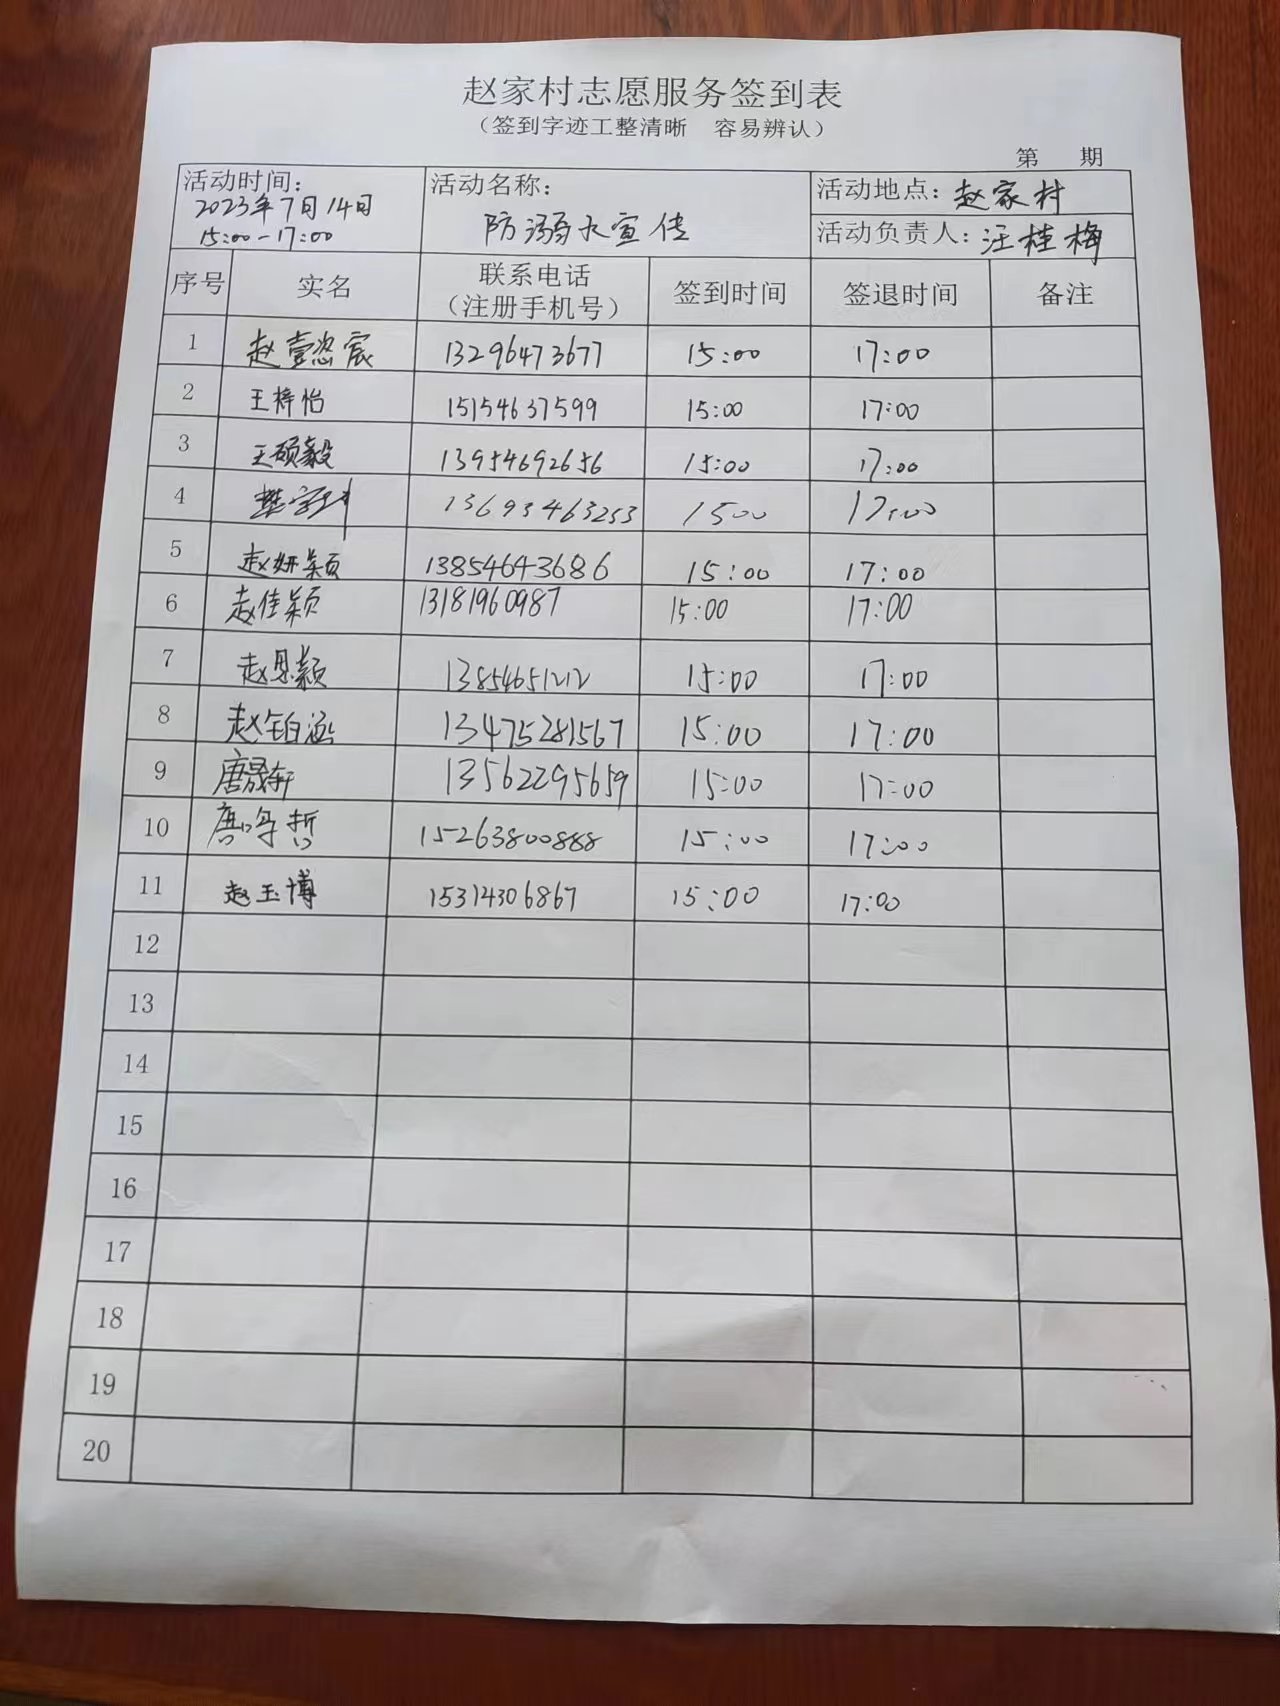 赵家村志愿服务签到表
（签到字迹工整清晰 容易辨认）
第 期
活动时间：
2023年7月14日
15:00-17:00
活动名称：
防溺水宣传
活动地点：赵家村
活动负责人：汪桂梅
序号 实名 联系电话（注册手机号） 签到时间 签退时间 备注
1 赵壹宸 13296473677 15:00 17:00
2 王梓怡 15154637599 15:00 17:00
3 王硕毅 13954692656 15:00 17:00
4 13693463253 1500 17:00
5 赵妍颖 13854643686 15:00 17:00
6 赵佳颖 13181960987 15:00 17:00
7 赵思颖 13854651212 15:00 17:00
8 赵铂涵 13475281567 15:00 17:00
9 唐晟轩 13562295659 15:00 17:00
10 唐鸣哲 15263800888 15:00 17:00
11 赵玉博 15314306867 15:00 17:00
12
13
14
15
16
17
18
19
20